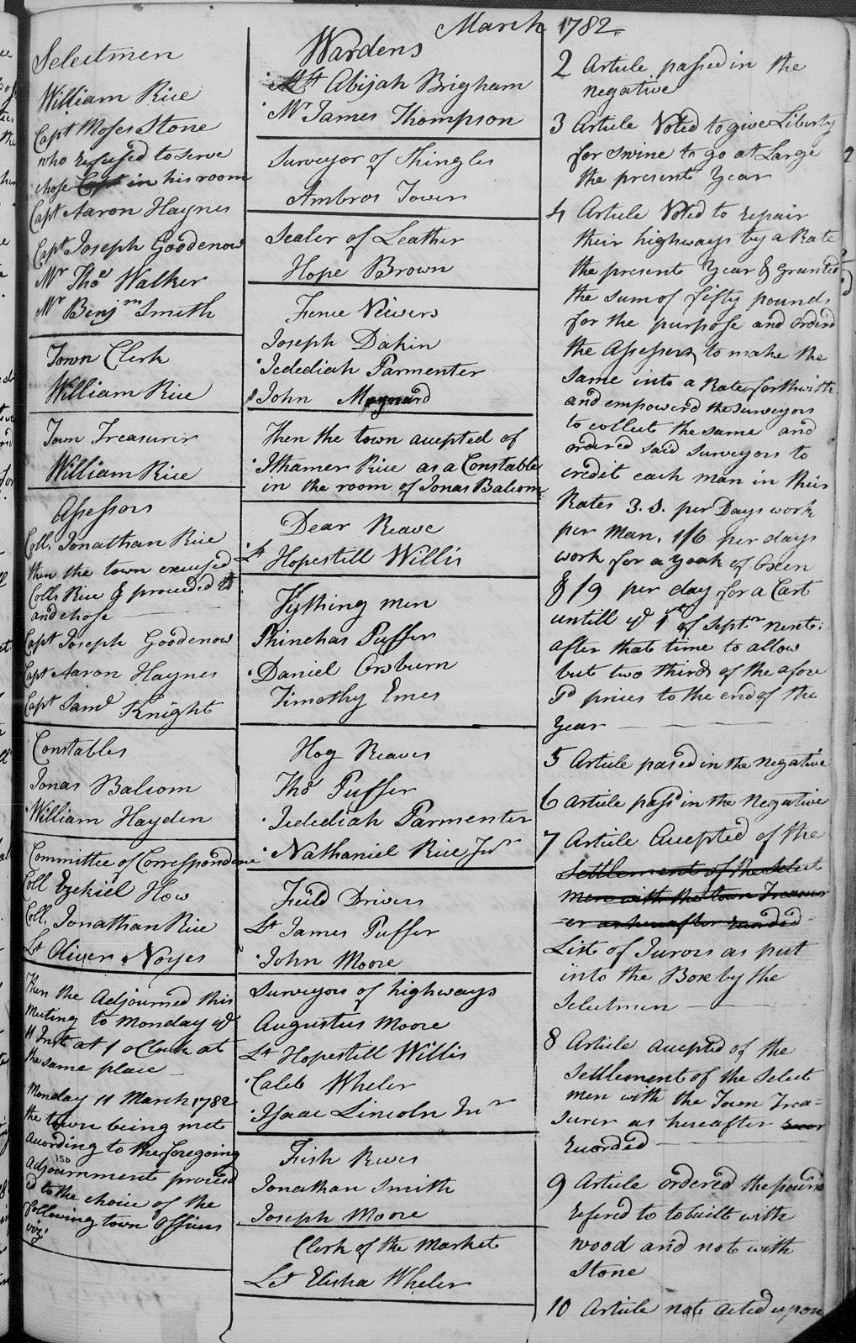 March 1782
Selectmen
William Rice
Capt Moses Stone
who refused to serve
chose Capt in his room
Capt Aaron Haynes
Capt Joseph Goodenow
Mr Thos Walker
Mr Benjm Smith
Town Clerk
William Rice
Town Treasurer
William Rice
Assessors
Coll. Jonathan Rice
then the town excused
Coll Rice & proceeded
and chose
Capt Joseph Goodenow
Capt Aaron Haynes
Capt Saml Knight
Constables
Jonas Balcom
William Hayden
Committee of Correspondence
Coll Ezekiel How
Coll. Jonathan Rice
Lt Oliver Noyes
Then the Adjourned this
Meeting to Monday ye
11 Inst at 1 oClock at
the same place
Monday 11 March 1782
the town being met
Acording to the foregoing
Adjournment proceed
ed to the choice of the
following town Officers
viz.
Wardens
Lt Abijah Brigham
Mr James Thompson
Surveyor of Shingles
Ambros Tower
Sealer of Leather
Hope Brown
Fence Viewers
Joseph Dakin
Jedediah Parmenter
John Maynard
Then the town accepted of
Ithamer Rice as a Constable
in the room of Jonas Balcom
Dear Reave
Lt Hopestill Willis
Tything men
Phinehas Puffer
Daniel Cosburn
Timothy Emes
Hog Reaves
Thos Puffer
Jedediah Parmenter
Nathaniel Rice Junr
Field Drivers
Lt James Puffer
John Moore
Surveyors of highways
Augustus Moore
Lt Hopestill Willis
Caleb Wheler
Isaac Lincoln Junr
Fish Reves
Jonathan Smith
Joseph Moore
Clerk of the Market
Lt Elisha Wheler
2 Article passed in the
negative
3 Article Voted to give Liberty
for Swine to go at Large
the present Year
4 Article Voted to repair
their highways by a Rate
the present Year & granted
the sum of fifty pounds
for the purpose and orderd
the Assessors to make the
same into a Rate forthwith
and empowerd the surveyors
to collect the same and
ordered said surveyors to
credit each man in their
Rates 3.s. per Days work
per Man, 1/6 per days
work for a yoak of Oxen
& /9 per day for a Cart
untill ye 1st of Septr next:
after that time to allow
but two thirds of the afore
sd prices to the end of the
Year
5 Article pased in the Negative
6 Article pass'd in the Negative
7 Article Accepted of the
Settlement of the Select
men with the town Treasur
er as hereafter Recorded
List of Jurors as put
into the Box by the
Selectmen
8 Article accepted of the
Settlement of the Select
men with the Town Trea=
surer as hereafter
Recorded
9 Article ordered the pound
refered to to built with
wood and not with
Stone
10 Article not acted upon